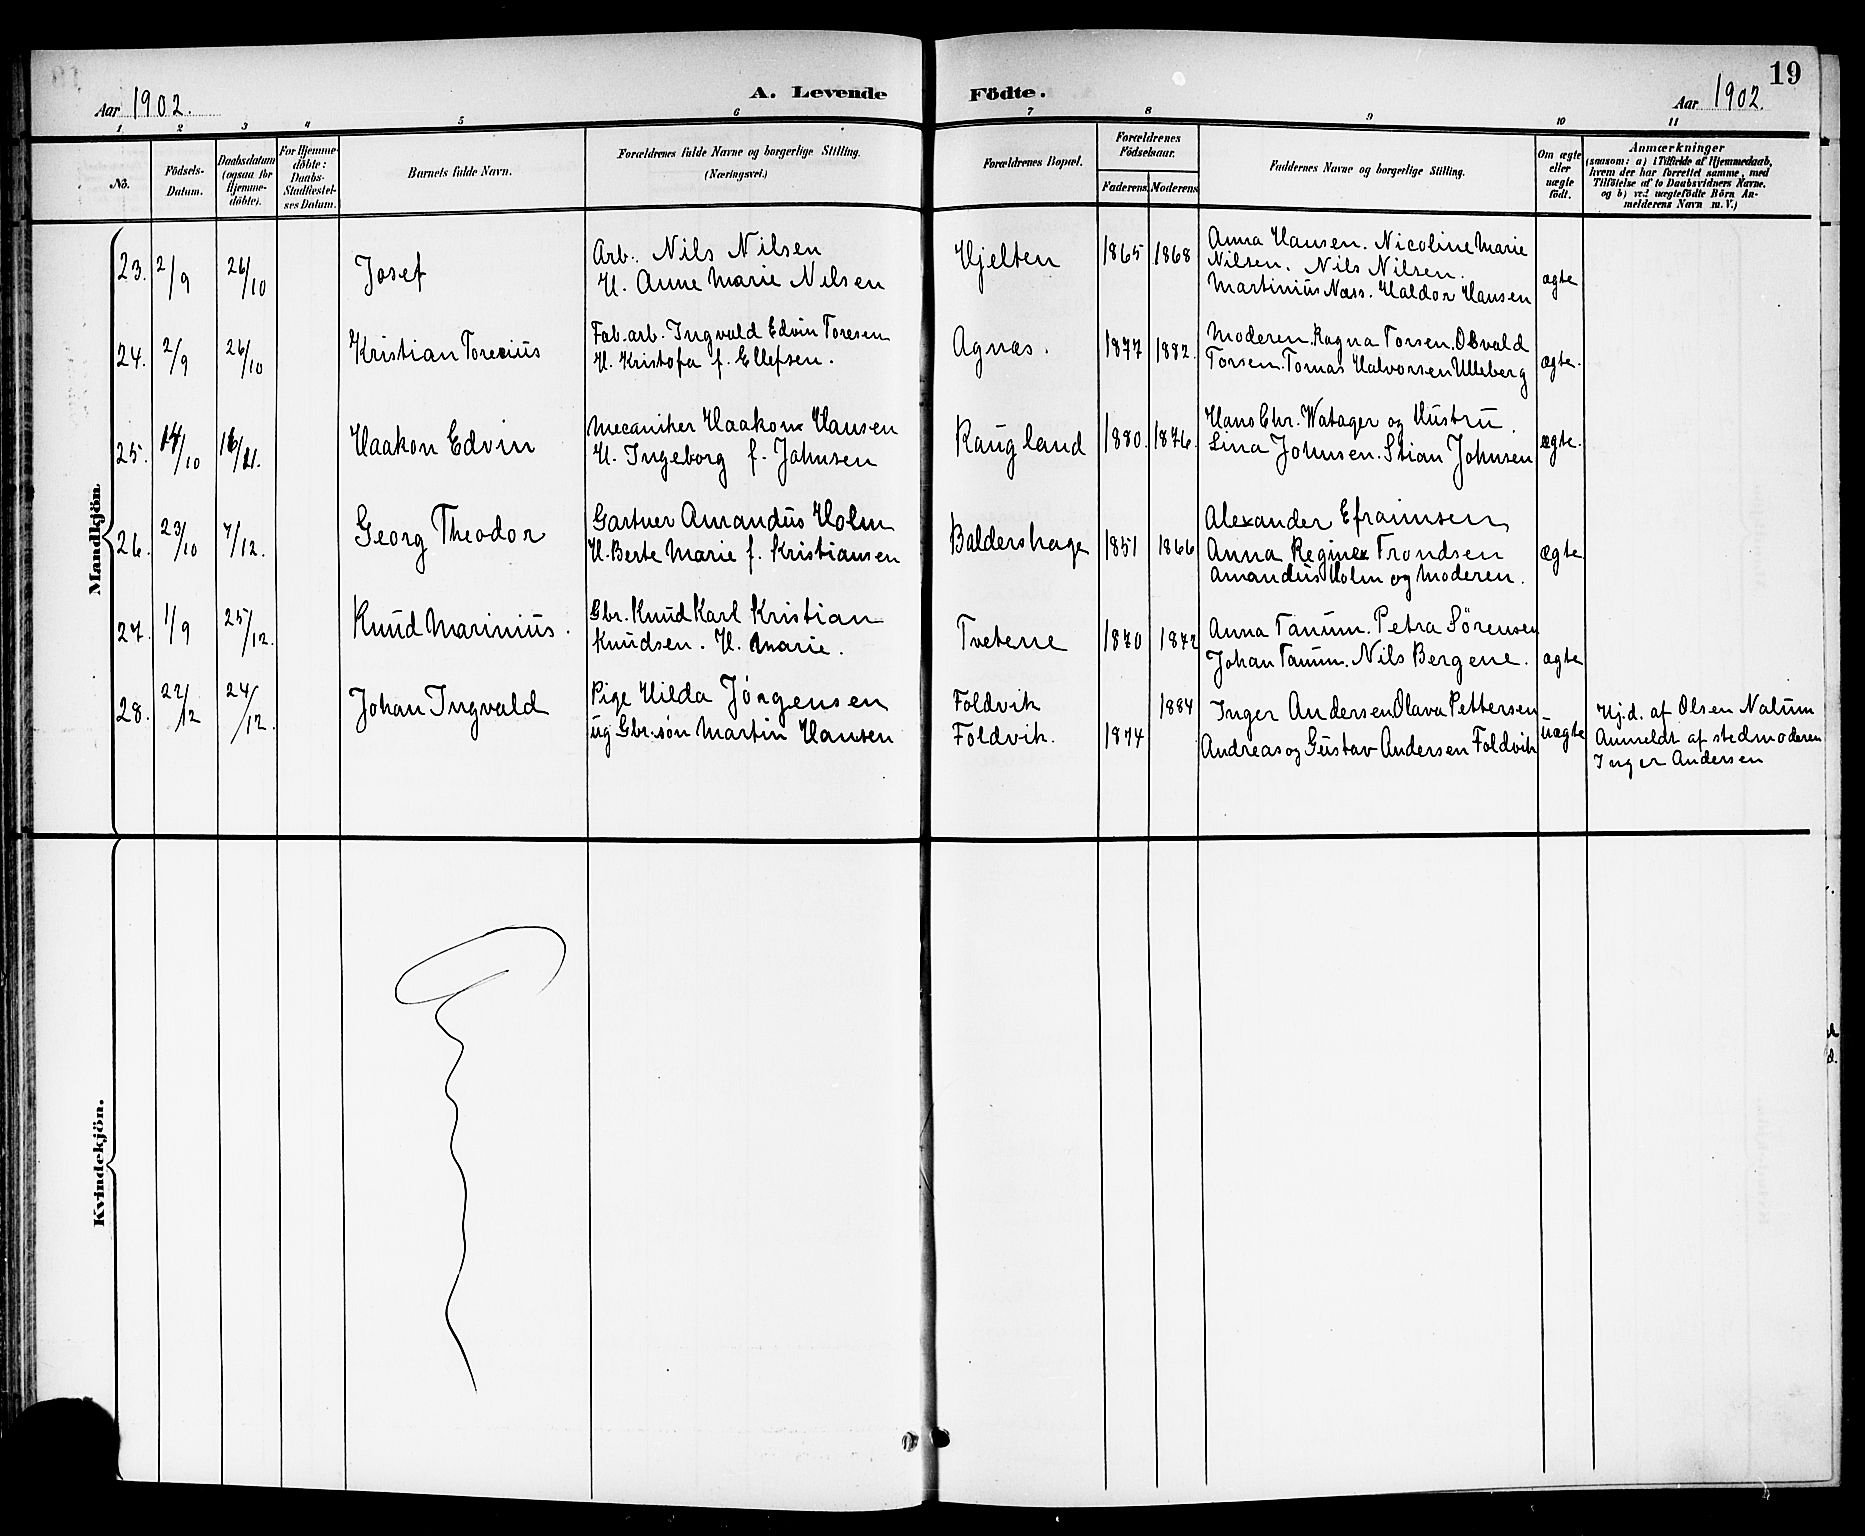 19
Aar 1902.
A. Levende Födte.
Aar 1902.
1 2 3 4 5 6 7 8 9 10 11
No.
Födsels-Datum.
Daabsdatum (ogsaa for Hjemme-döbte).
For Hjemme-döbte: Daabs-Stadfæstel-ses Datum.
Barnets fulde Navn.
Forældrenes fulde Navne og borgerlige Stilling.
(Næringsvei.)
Forældrenes Bopæl.
Forældrenes Födselsaar.
Faderens Moderens
Faddernes Navne og borgerlige Stilling.
Om ægte eller uægte födt.
Anmærkninger
(saasom: a) i Tilfælde af Hjemmedaab,
hvem der har forrettet samme, med
Tilföielse af to Daabsvidners Navne,
og b) ved uægtefödte Börn An-
melderens Navn m. V.)
Mandkjön.
23. 2/9 26/10 Josef
Arb. Nils Nilsen
H. Anne Marie Nilsen
Hjelten 1865 1868
Anna Hansen. Nicoline Marie
Nilsen. Nils Nilsen.
Martinius Næss. Haldor Hansen
ægte
24. 2/9 26/10 Kristian Torecius
Fab.arb. Ingvald Edvin Toresen
H. Kristofa f. Ellefsen.
Agnæs. 1877 1882.
Moderen. Ragna Torsen. Osvald
Torsen. Tomas Halvorsen Ulleberg
ægte.
25. 14/10 16/11. Haakon Edvin
Mecaniker Haakon Hansen
H. Ingeborg f. Johnsen
Raugland 1880. 1876.
Hans Chr. Watager og Hustru.
Lina Johnsen. Stian Johnsen
ægte.
26. 23/10 7/12. Georg Theodor
Gartner Amandus Holm
H. Berte Marie f. Kristiansen
Baldershage 1851 1866
Alexander Efraimsen
Anna Regine Trondsen
Amandus Holm og Moderen.
ægte
27. 1/9 25/12. Knud Marinius.
Gbr. Knud Karl Kristian
Knudsen. H. Marie.
Tvetene 1870 1872
Anna Tanum. Petra Sörensen
Johan Tanum. Nils Bergene.
ægte
28. 22/12 24/12. Johan Ingvald
Pige Hilda Jörgensen
ug Gbr.søn Martin Hansen
Foldvik 1884
Foldvik. 1874
Inger Andersen Olava Pettersen
Andreas og Gustav Andersen Foldvik
uægte
Hj.d. af Olsen Nalum
Anmeldt af stedmoderen
Inger Andersen
Kvindekjön.